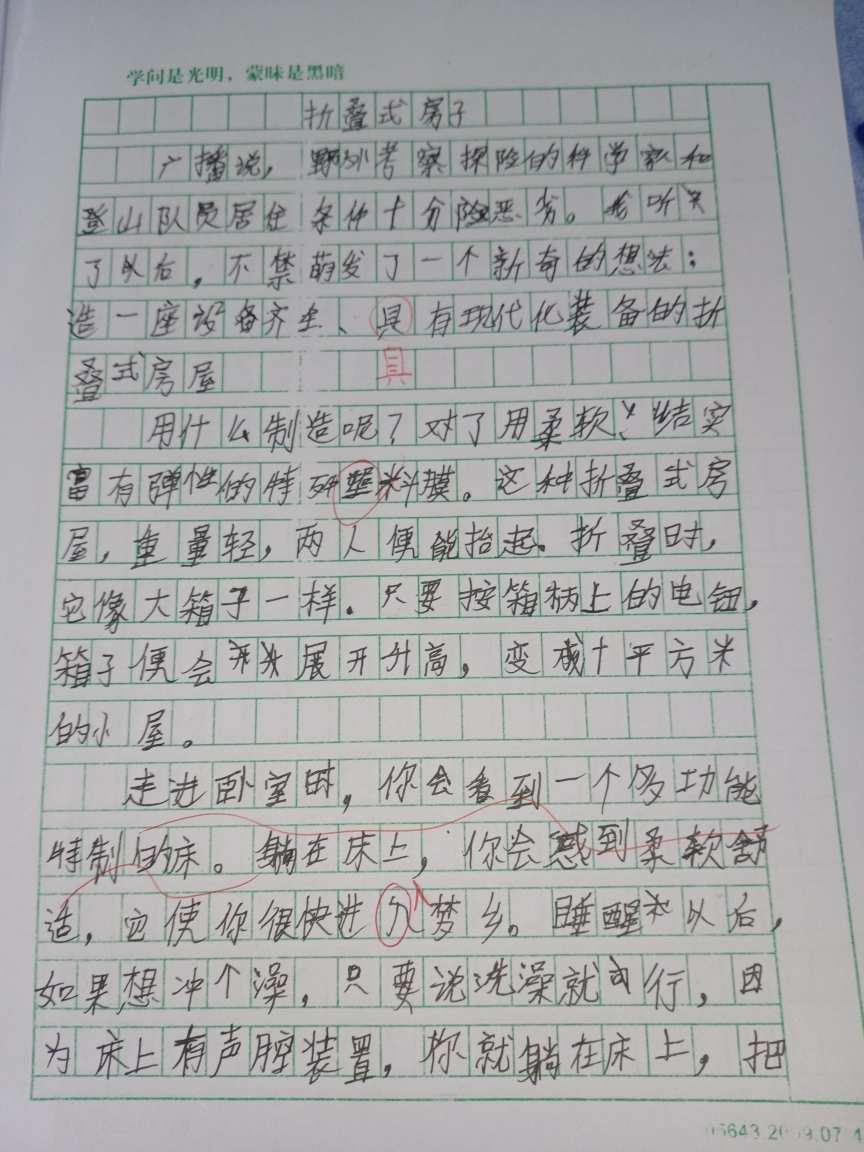 学问是光明，蒙昧是黑暗
折叠式房子
广播说，野外考察探险的科学家和
登山队员居住条件十分险恶劣。我听完
了以后，不禁萌发了一个新奇的想法：
造一座设备齐全、具有现代化装备的折
叠式房屋
具
用什么制造呢？对了用柔软、结实
富有弹性的特殊塑料膜。这种折叠式房
屋，重量轻，两人便能抬起。折叠时，
它像大箱子一样．只要按箱柄上的电钮，
箱子便会开头展开升高，变成十平方米
的小屋。
走进卧室时，你会看到一个多功能
特制的床。躺在床上，你会感到柔软舒
适，它使你很快进入梦乡。睡醒以后，
如果想冲个澡，只要说洗澡就可行，因
为床上有声腔装置，你就躺在床上，把